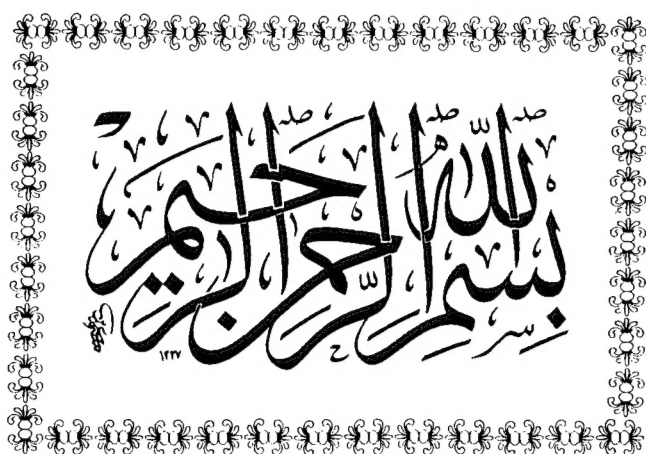 بسم الله الرحمن الرحيم
١٣٣٧